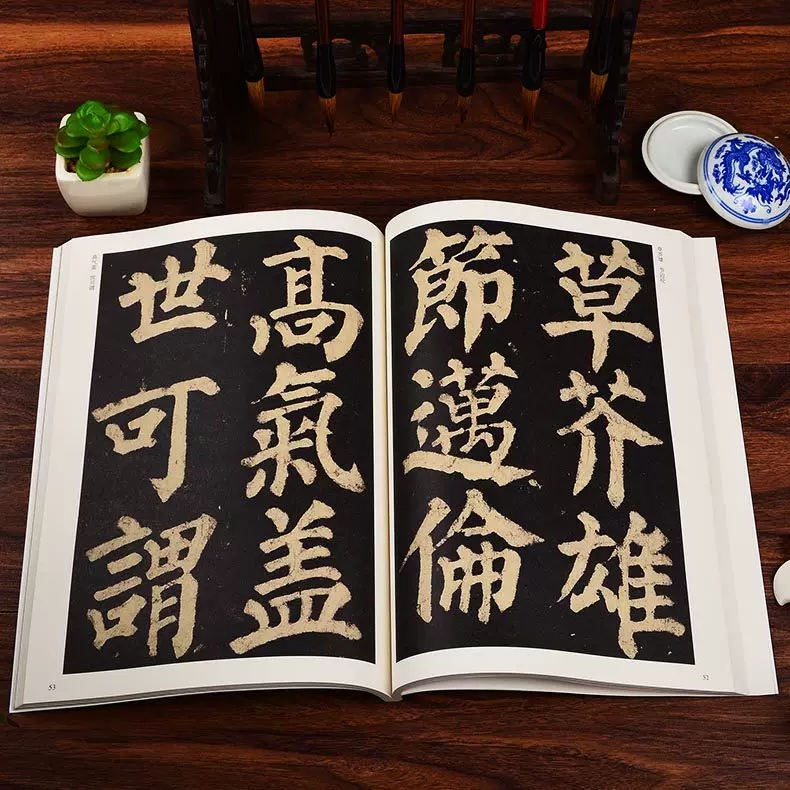 草芥雄
節邁倫
高氣盖
世可謂
52
53